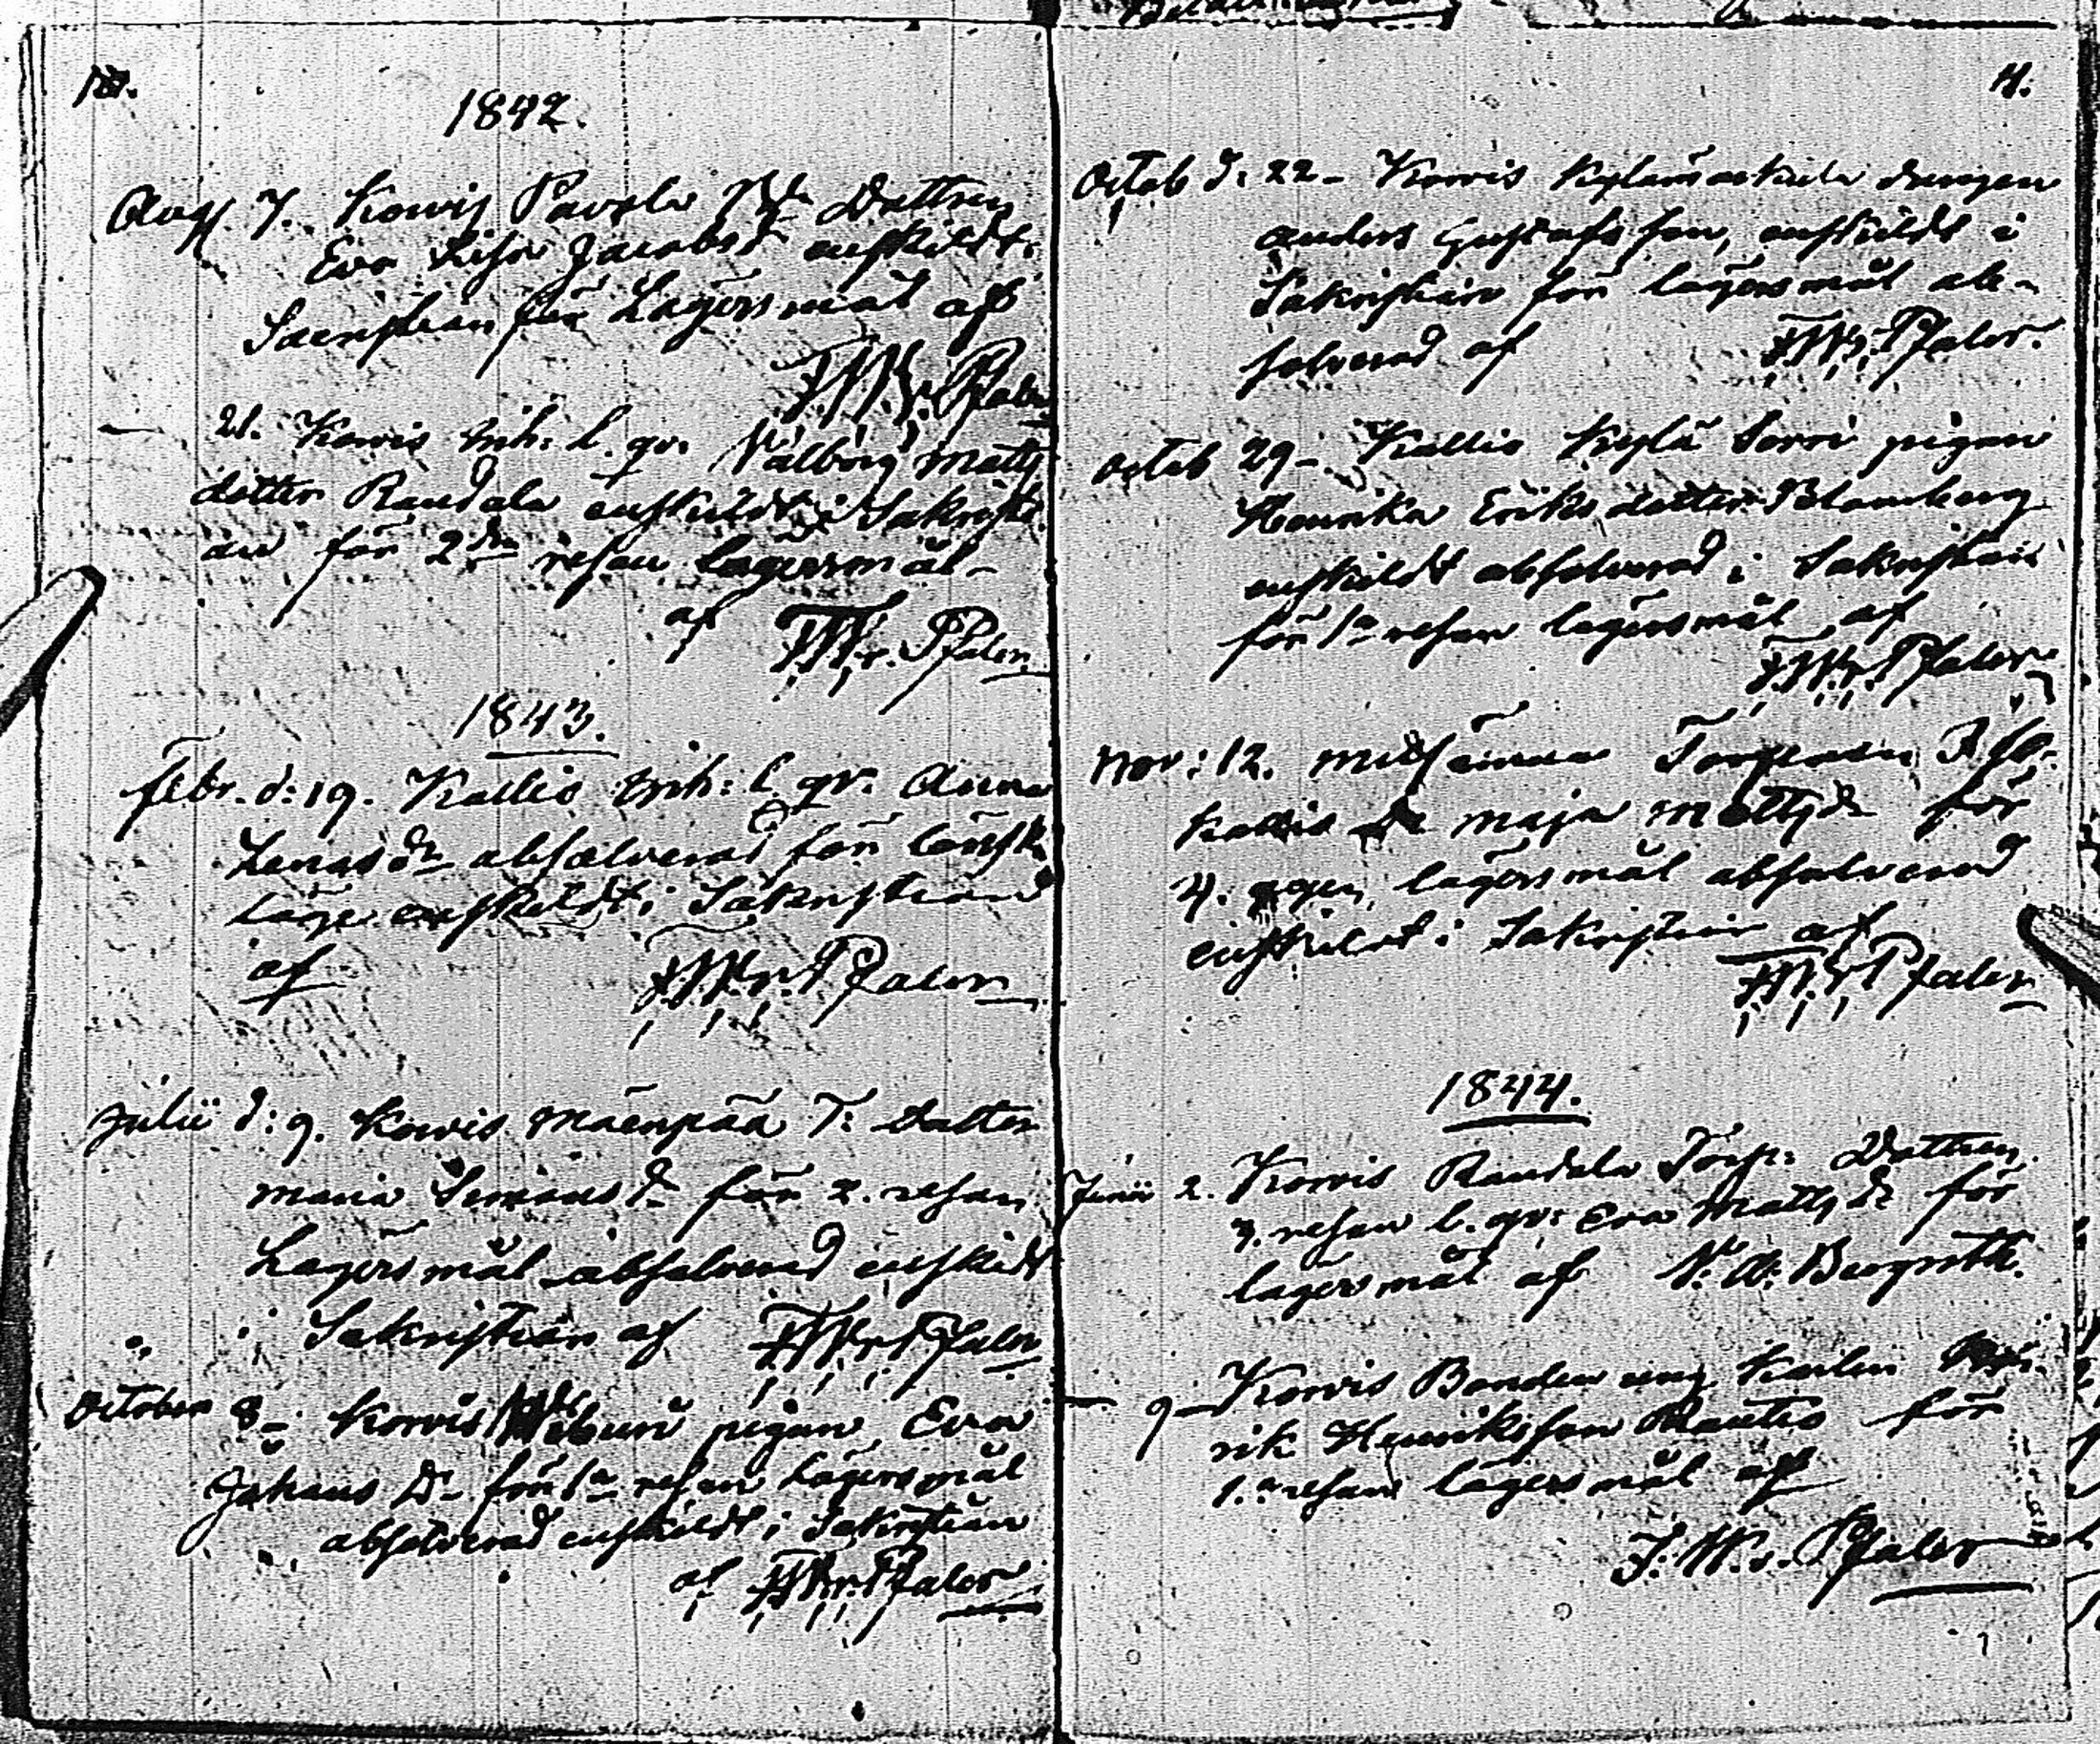 10.
1842.
Aug. 7. Kowis Pavola Dottren
Eva Lisa Jacobsd. enskildt i
Sacristian för Lägersmål af
F. W. v. Pfaler
21. Kowis Inh: l. qv. Valborg Matts
dotter Raudala enskildt i Sakristi
an för 2dra resan lägersmål
af F. W. v. Pfaler
1843.
Febr. d: 19. Kallis Inh: l. qv. Anna
Lenasdr absolverad för Lönsk
Läge enskildt i Sakristian
af F. W. v. Pfaler
Julii d: 9. Kowis Mäenpää T: dotter
Maria Simonsdr för 2. resan
Lägersmål absolverad enskildt
i Sakristian af F. W. v. Pfaler
October 8 Kowis pigan Eva
Johans Dr för 1a resan Lägersmål
absolverad enskildt i Sakristian
af F. W. v. Pfaler
11.
Octob d: 22 - Kowis drengen
Anders Gustafsson, enskildt i
Sakristian för lägersmål ab-
solverad af F. W. v. Pfaler.
Octob 29 - Kallis Kylä Sorri pigan
Henrika Eriksdotter Blomberg
enskildt absolverad i Sakristian
för 1a resan lägersmål af
F. W. v. Pfaler
Nov: 12.
Kallis Maja Mattsdr för
4. gången lägersmål absolverad
enskildt i Sakristian af
F. W. v. Pfaler
1844.
Junii 2. Kowis Raudala Torp: Dottren
3. resan l. qv: Eva Mattsdr för
lägersmål af N: A: Bergroth.
9 - Kowis Bonden ung Karlen
rik Henriksson Rautio för
1.a resan lägersmål af
F. W. v. Pfaler